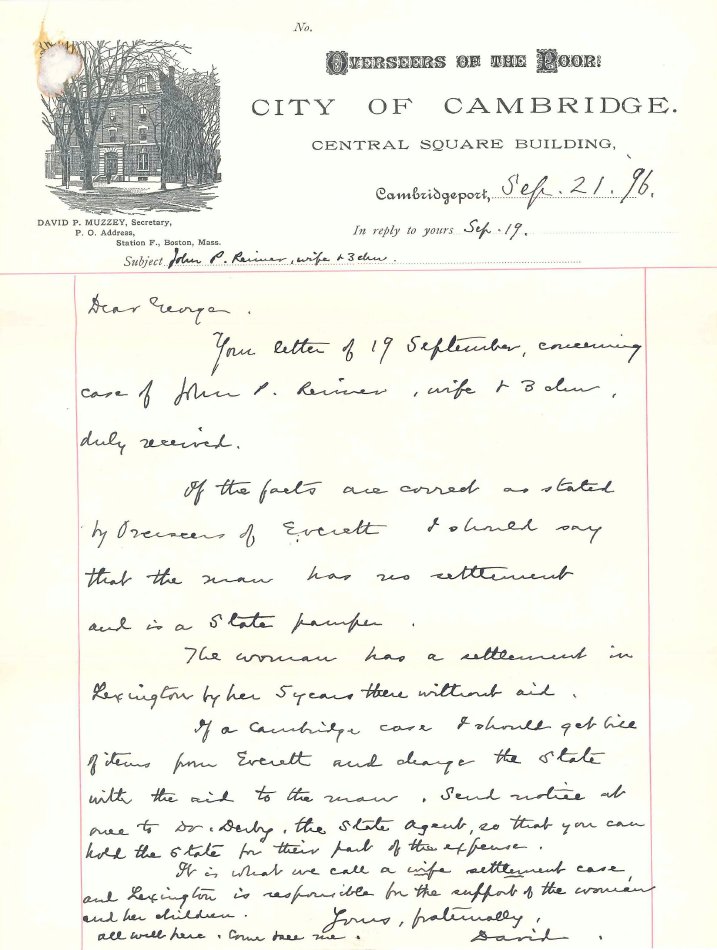 No.
OVERSEERS OF THE POOR:
CITY OF CAMBRIDGE.
CENTRAL SQUARE BUILDING,
Cambridgeport, Sep. 21. 96.
DAVID P. MUZZEY, Secretary,
P. O. Address,
Station F., Boston, Mass.
In reply to yours Sep. 19.
Subject John P. Reimer, wife + 3 chn.
Dear George.
Your letter of 19 September, concerning
case of John P. Reimer, wife + 3 chn,
duly received.
If the facts are correct as stated
by Overseers of Everett I should say
that the man has no settlement
and is a State pauper.
The woman has a settlement in
Lexington by her 5 years there without aid.
If a Cambridge case I should get bill
of items from Everett and charge the State
with the aid to the man. Send notice at
once to Dr. Derby, the State Agent, so that you can
hold the State for their part of the expense.
It is what we call a wife settlement case,
and Lexington is responsible for the support of the woman
and her children.
Yours, fraternally,
all well here. Come see me.
David.